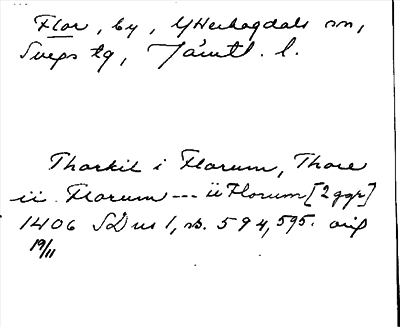 Flor, by, Ytterhogdals sn,
Svegs tg, Jämtl. l.
Thorkil i Florum, Thore
ii Florum --- ii Florum [2 ggr]
1406 SD us 1, s. 594, 595. orig
19/11